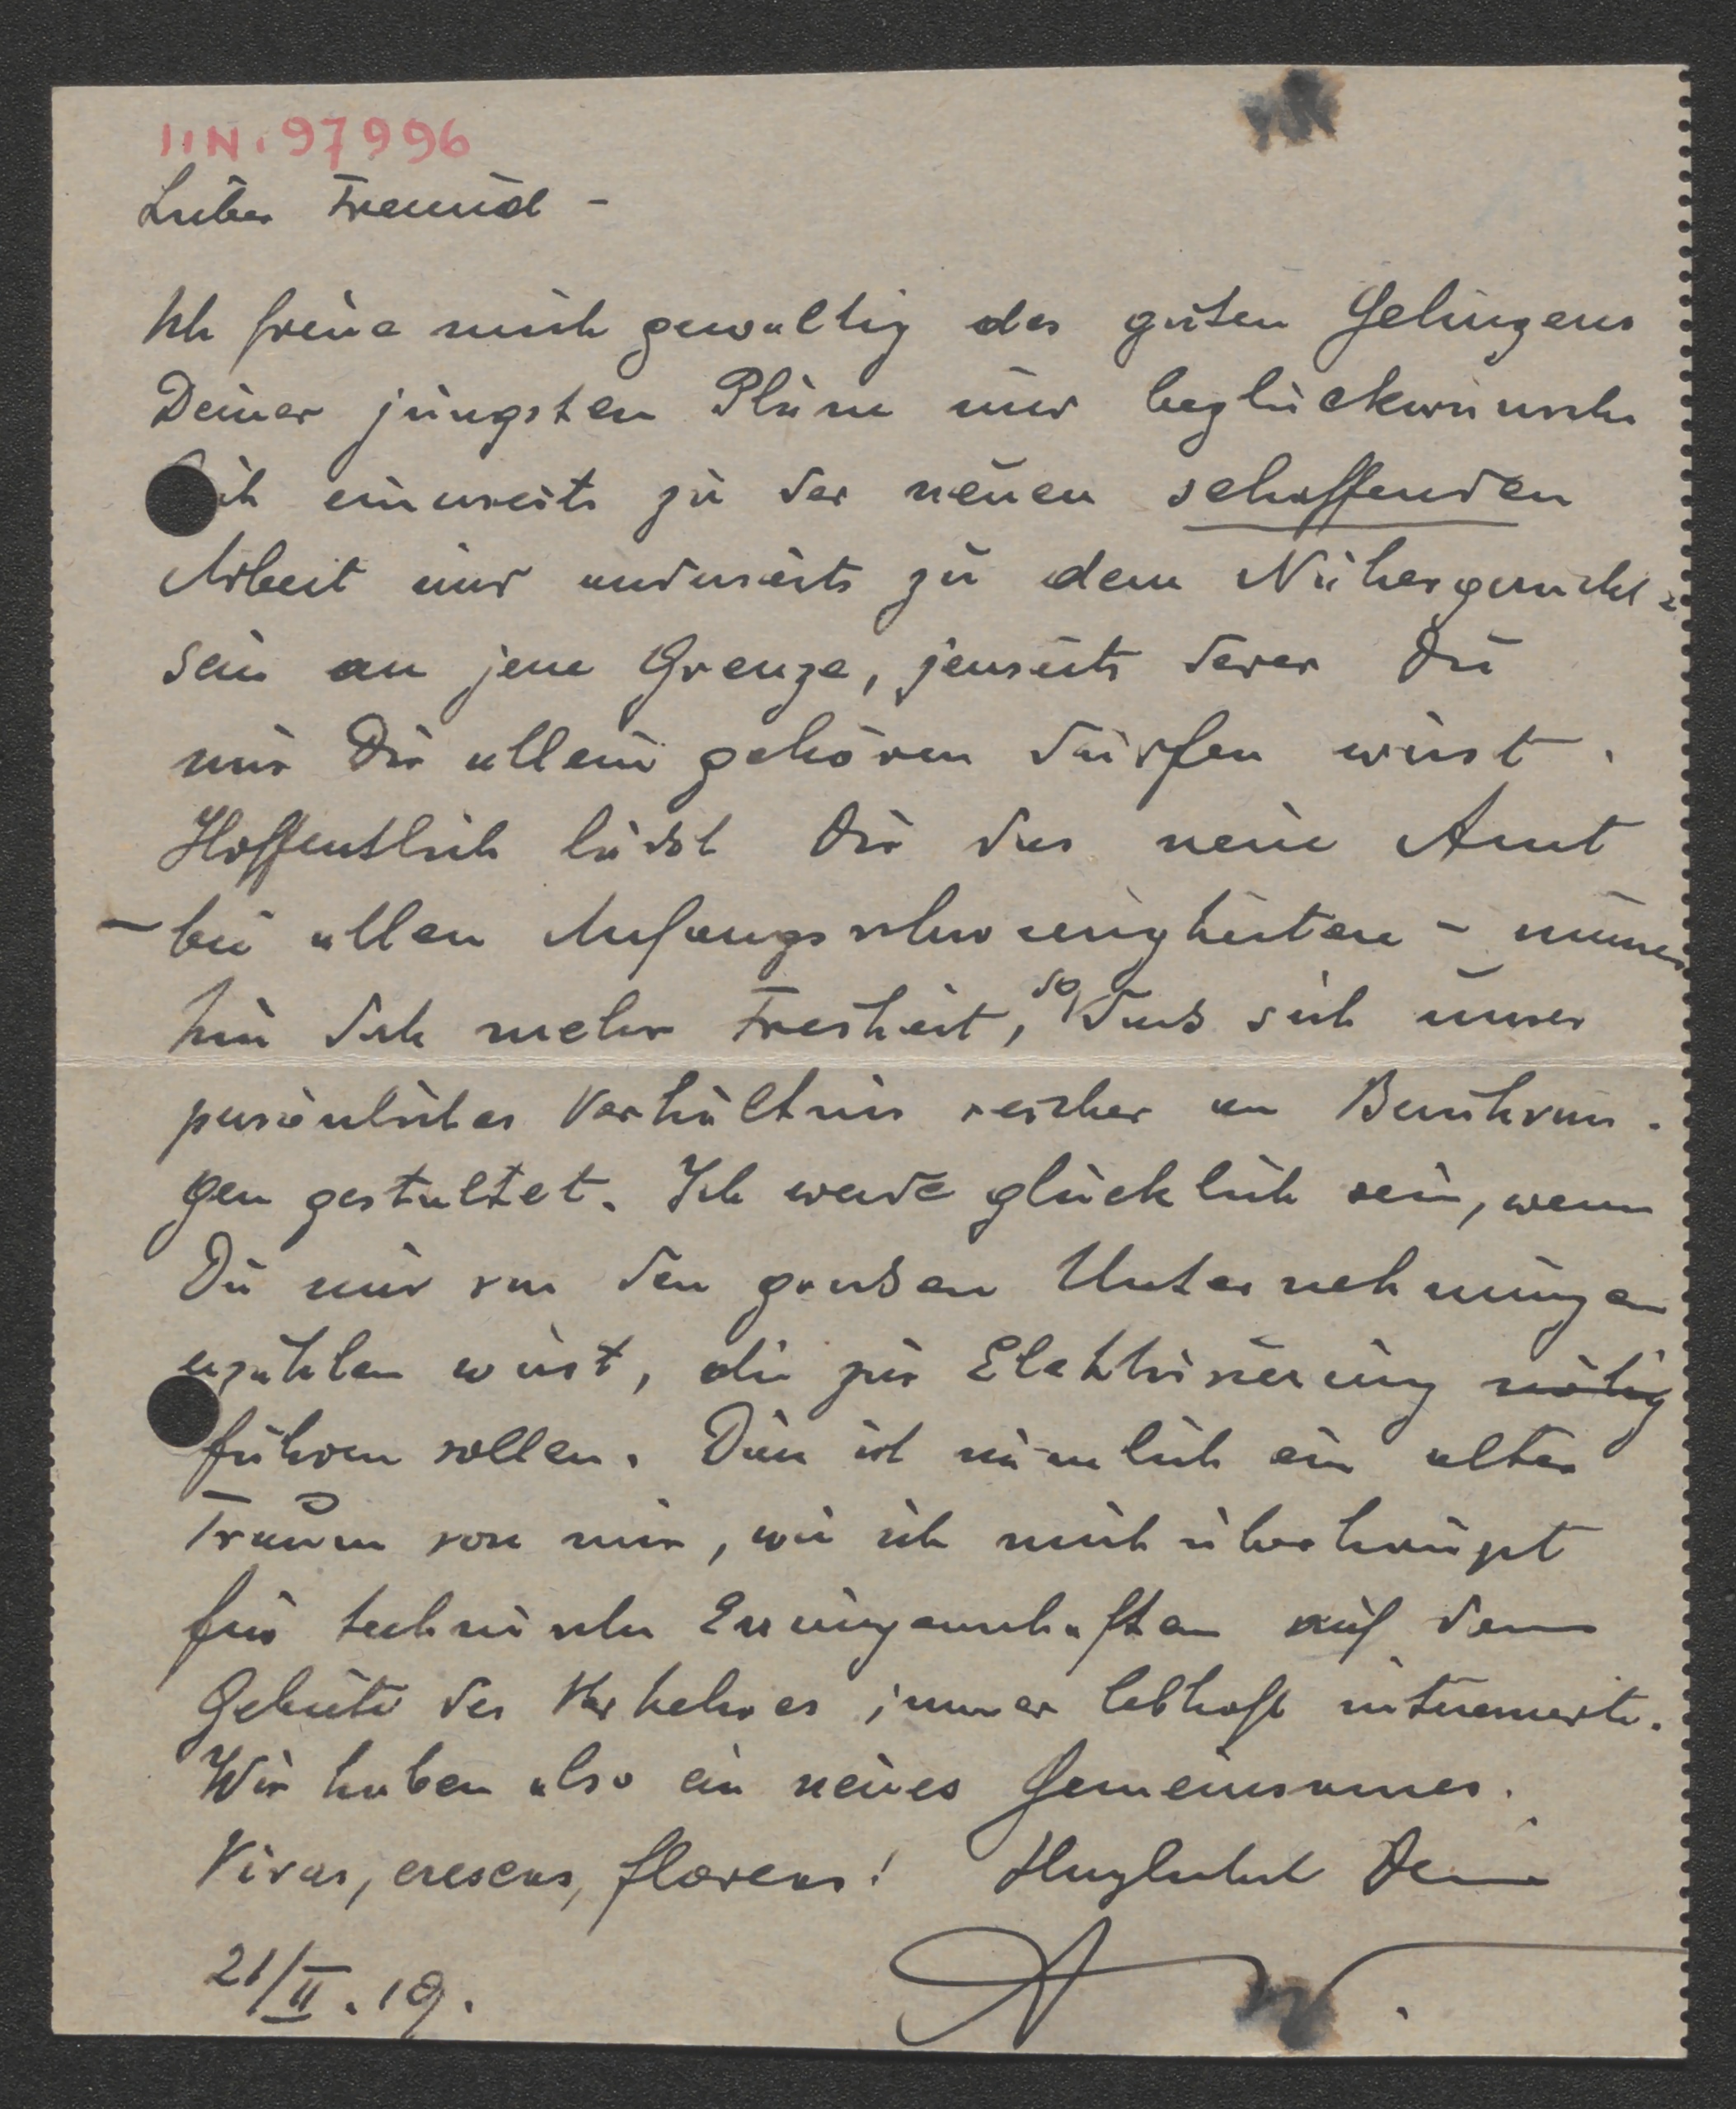 IIN. 97996
Lieber Freund -
Ich freue mich gewaltig des guten Gelingens
Deiner jüngsten Pläne und beglückwünsche
Dich einerseits zu der neuen schaffenden
Arbeit und anderseits zu dem Nähergerückt-
sein an jene Grenze, jenseits derer Du
nur Dir allein gehören dürfen wirst.
Hoffentlich läßt Dir das neue Amt
- bei allen Anfangsschwierigkeiten - immer
hin doch mehr Freiheit, so daß sich unser
persönliches Verhältnis reicher an Berührun-
gen gestaltet. Ich werde glücklich sein, wenn
Du mir von den großen Unternehmungen
erzählen wirst, die zur Elektrisierung nötig
führen sollen. Dies ist nämlich ein alter
Traum von mir, wie ich mich überhaupt
für technische Errungenschaften auf dem
Gebiete des Verkehres immer lebhaft interessierte.
Wir haben also ein neues Gemeinsames.
Vivas, crescas, floreas! Herzlichst Dein
21/II. 19.